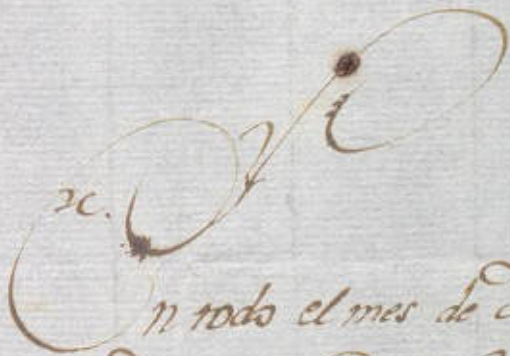 En todo el mes de